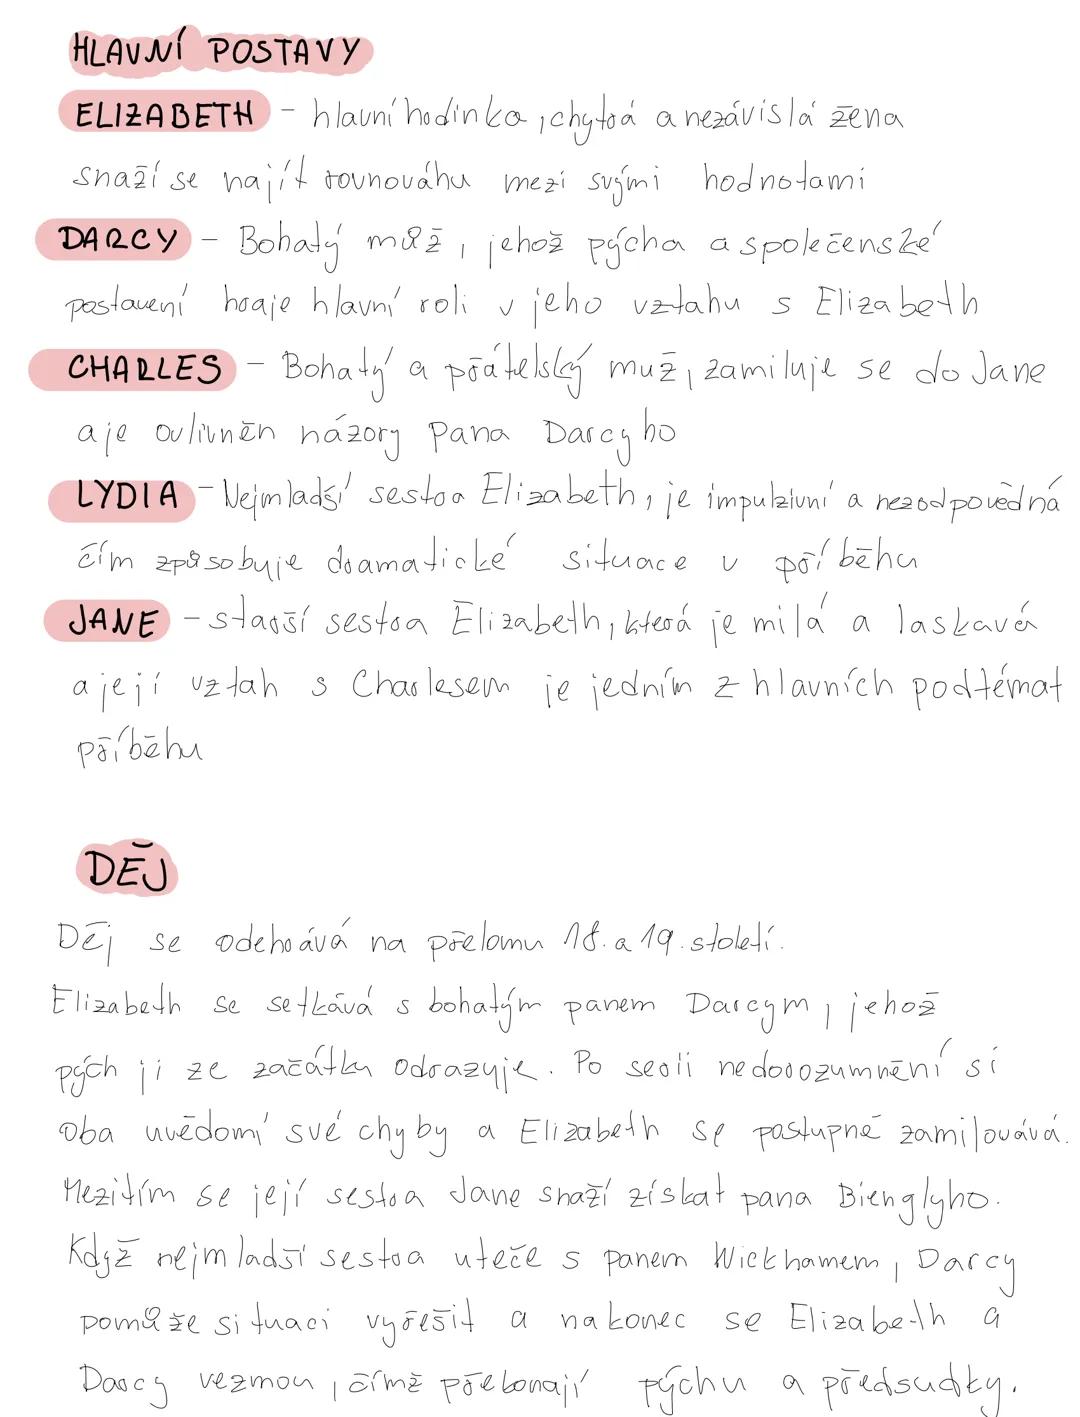 HLAVNÍ POSTAVY
ELIZABETH - hlavní hodinka, chytrá a nezávislá žena
snaží se najít rovnováhu mezi svými hodnotami
DARCY - Bohatý můž, jehož pýcha a společenské
postavení hraje hlavní roli v jeho vztahu s Elizabeth
CHARLES - Bohatý a přátelský muž, zamiluje se do Jane
a je ovlivněn názory pana Darcyho
LYDIA - Nejmladší sestra Elizabeth, je impulzivní a nezodpovědná
čím způsobuje dramatické situace v příběhu
JANE - starší sestra Elizabeth, která je milá a laskavá
a její vztah s Charlesem je jedním z hlavních podtémat
příběhu
DĚJ
Děj se odehrává na přelomu 18. a 19. století.
Elizabeth se setkává s bohatým panem Darcym, jehož
pých ji ze začátku odrazuje. Po serii nedorozumnění si
oba uvědomí své chyby a Elizabeth se postupně zamilovává.
Mezitím se její sestra Jane snaží získat pana Bienglyho.
Když nejmladší sestra uteče s panem Wickhamem, Darcy
pomůže situaci vyřešit a nakonec se Elizabeth a
Darcy vezmou, čímž překonají pýchu a předsudky.